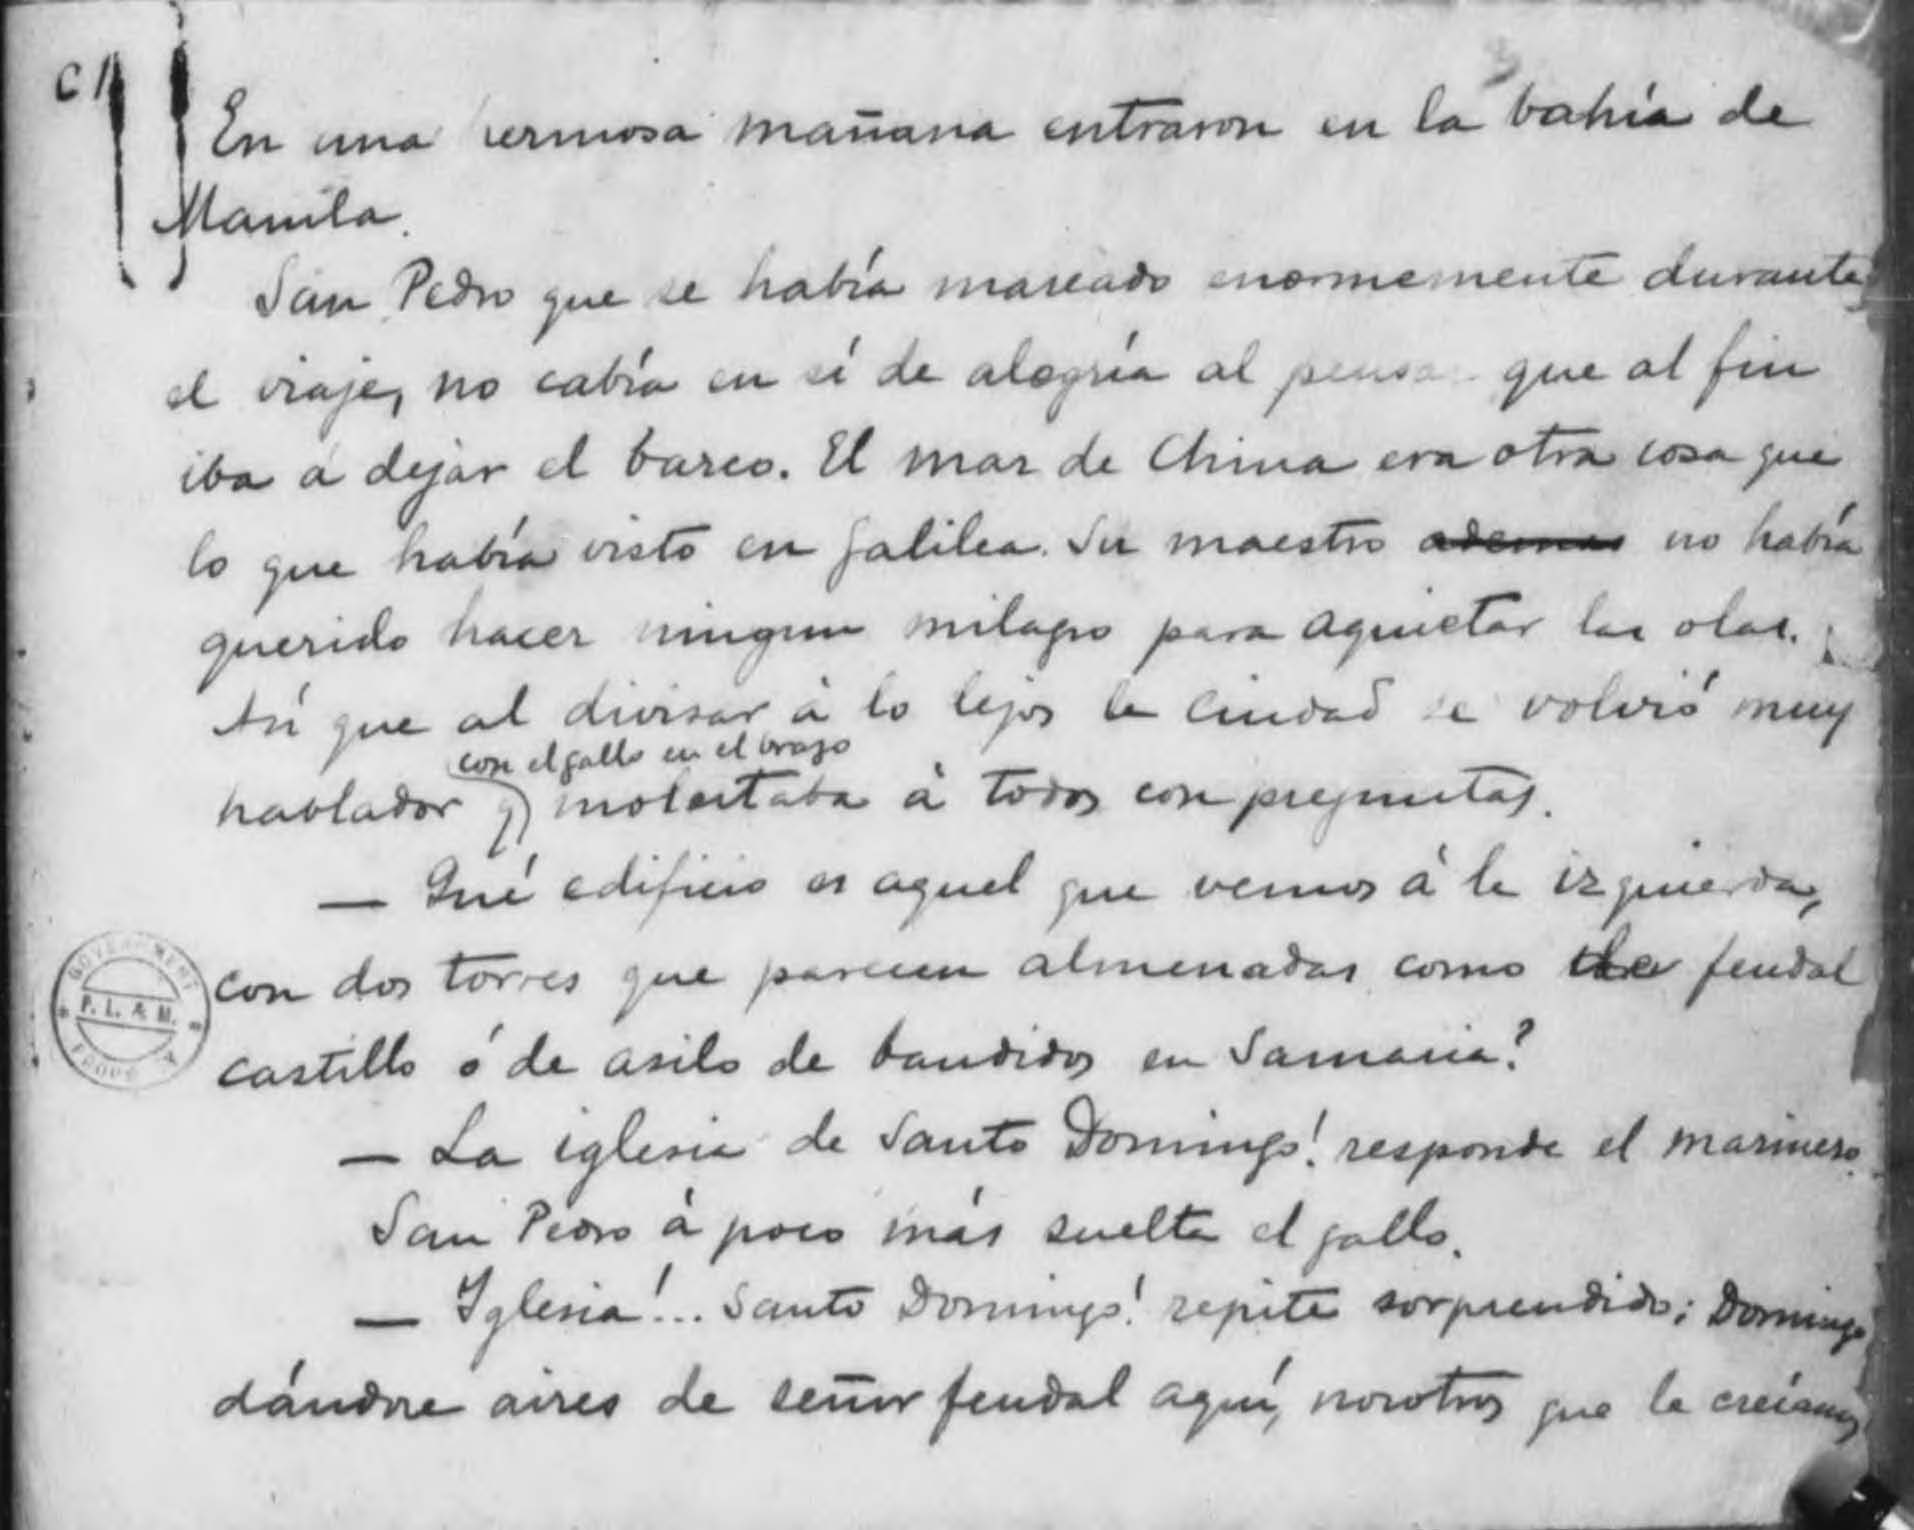 C
En una hermosa mañana entraron en la bahía de
Manila.
San Pedro que se había mareado enormemente durante
el viaje, no cabía en sí de alegría al pensar que al fin
iba á dejar el barco. El mar de China era otra cosa que
lo que había visto en Galilea. Su maestro ademas no había
querido hacer ningun milagro para aquietar las olas.
Así que al divisar á lo lejos la ciudad se volvió muy
con el gallo en el brazo
hablador y molestaba á todos con preguntas.
— Qué edificio es aquel que vemos á la izquierda,
con dos torres que parecen almenadas como feudal
castillo ó de asilo de bandidos en Samaria?
— La iglesia de Santo Domingo! responde el marinero.
San Pedro á poco más suelta el gallo.
— Iglesia!... Santo Domingo! repite sorprendido; Domingo
dándose aires de señor feudal aquí, nosotros que le creíamos
GOVERNMENT
P. L. & M.